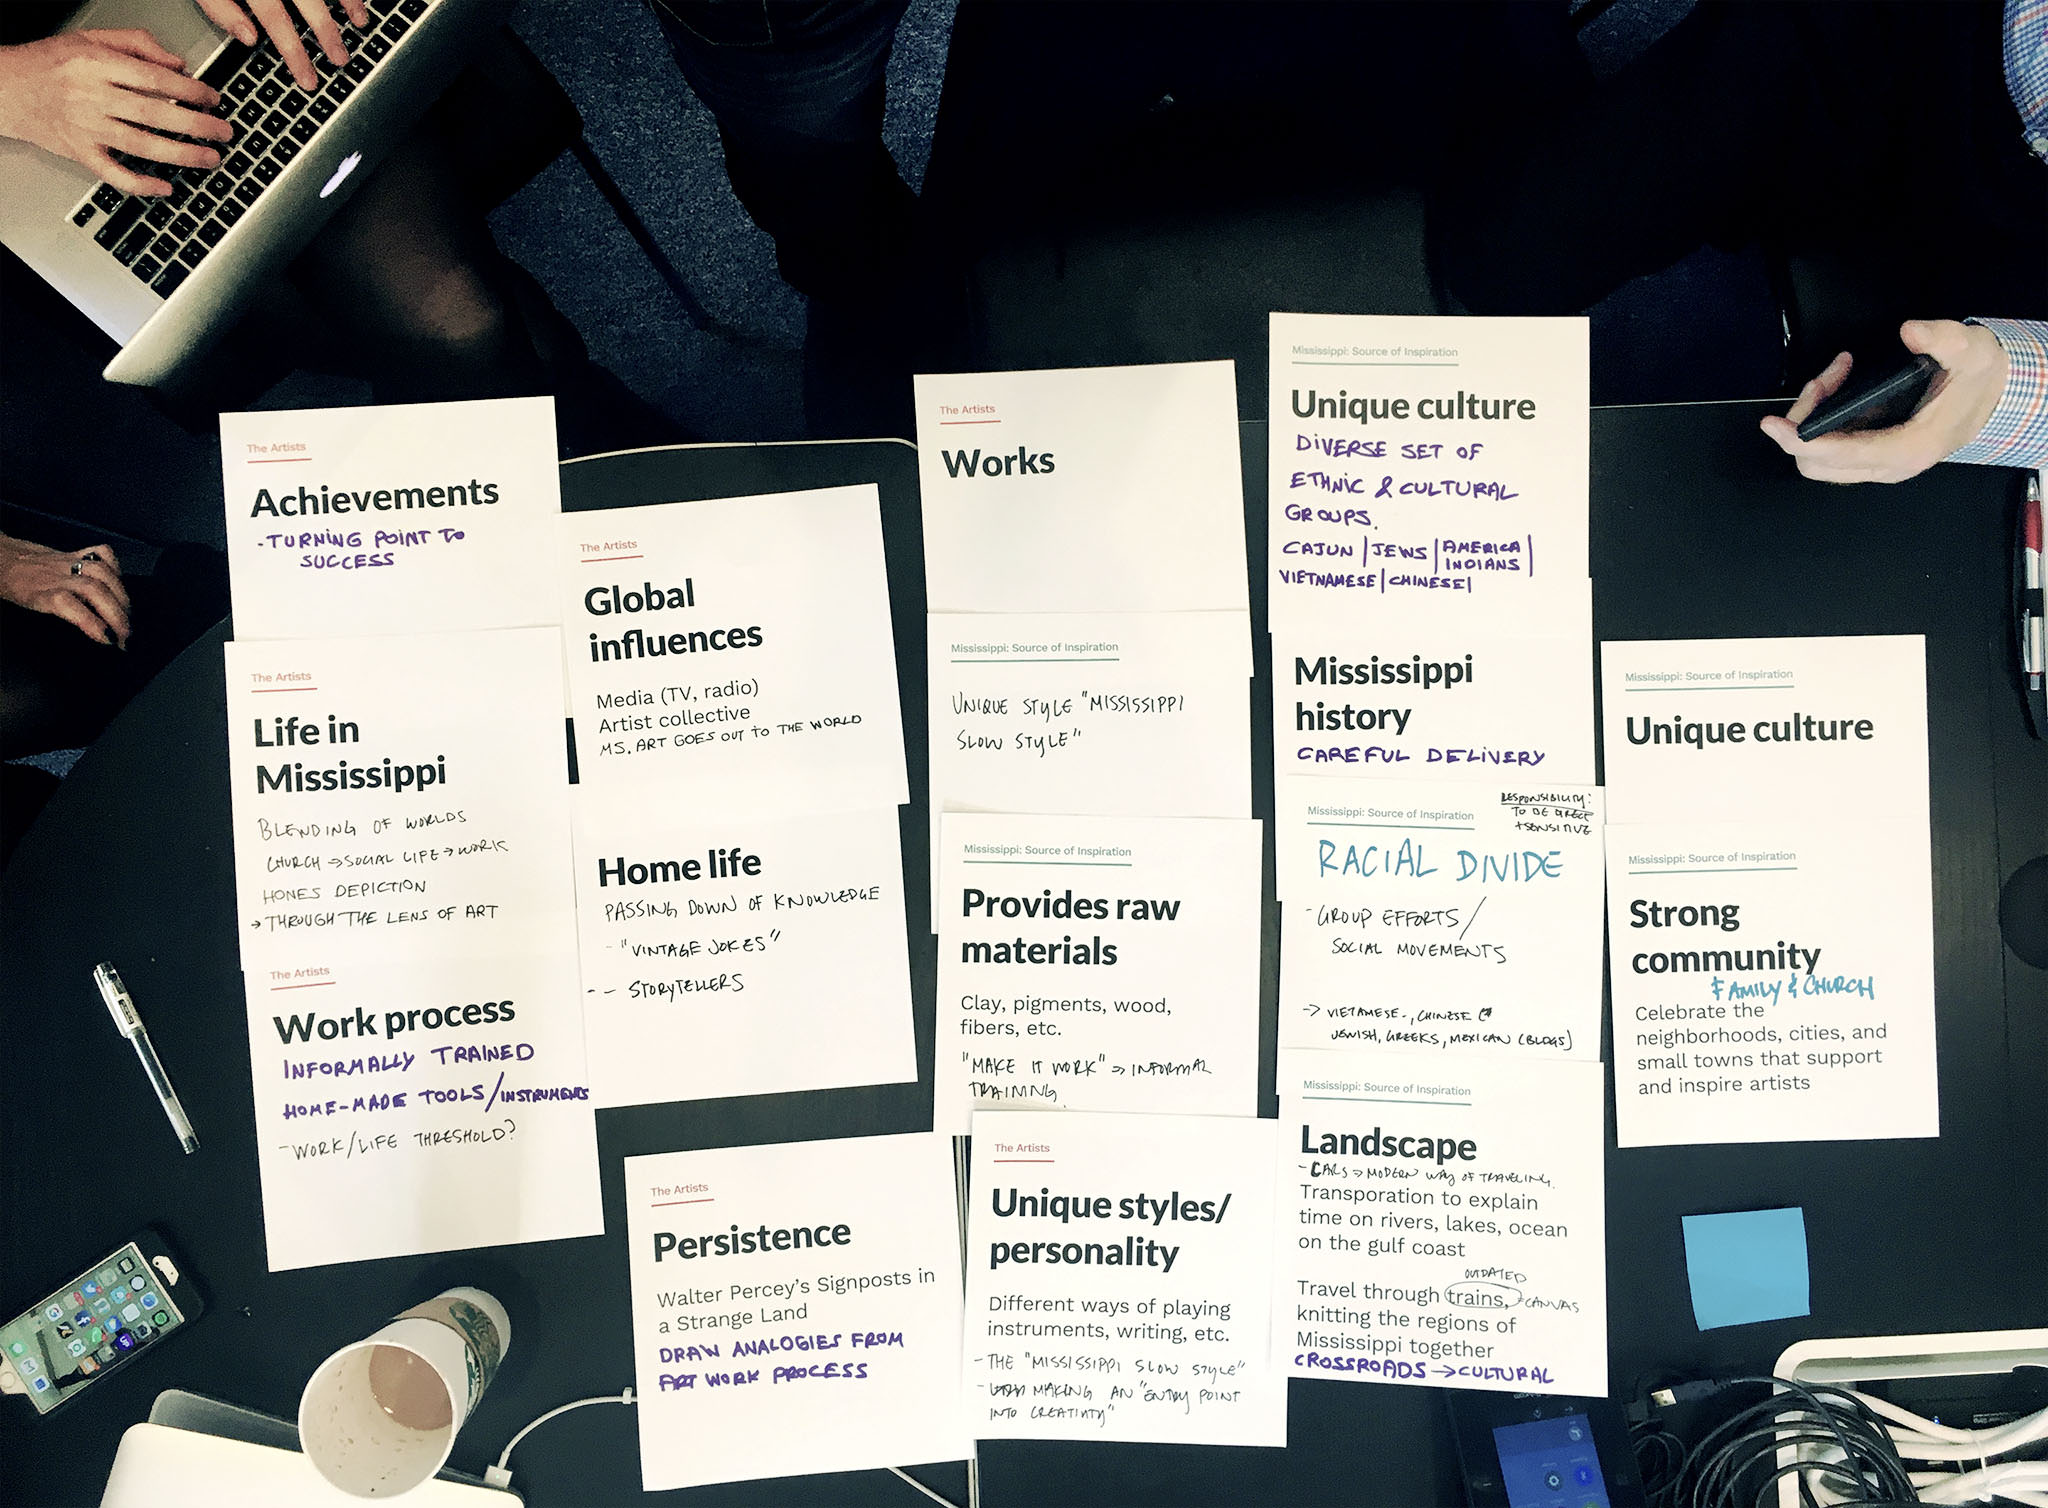 The Artists
Achievements
- TURNING POINT TO
SUCCESS
The Artists
Life in
Mississippi
BLENDING OF WORLDS
CHURCH → SOCIAL LIFE → WORK
HONES DEPICTION
→ THROUGH THE LENS OF ART
The Artists
Work process
INFORMALLY TRAINED
HOME-MADE TOOLS/INSTRUMENTS
- WORK/LIFE THRESHOLD?
The Artists
Global
influences
Media (TV, radio)
Artist collective
MS. ART GOES OUT TO THE WORLD
Home life
PASSING DOWN OF KNOWLEDGE
- "VINTAGE JOKES"
-- STORYTELLERS
The Artists
Persistence
Walter Percey's Signposts in
a Strange Land
DRAW ANALOGIES FROM
ART WORK PROCESS
The Artists
Works
Mississippi: Source of Inspiration
UNIQUE STYLE "MISSISSIPPI
SLOW STYLE"
Mississippi: Source of Inspiration
Provides raw
materials
Clay, pigments, wood,
fibers, etc.
"MAKE IT WORK" → INFORMAL
TRAINING
The Artists
Unique styles/
personality
Different ways of playing
instruments, writing, etc.
- THE "MISSISSIPPI SLOW STYLE"
- MAKING AN "ENTRY POINT
INTO CREATIVITY"
Mississippi: Source of Inspiration
Unique culture
DIVERSE SET OF
ETHNIC & CULTURAL
GROUPS.
CAJUN | JEWS | AMERICA
INDIANS |
VIETNAMESE | CHINESE |
Mississippi
history
CAREFUL DELIVERY
Mississippi: Source of Inspiration
RESPONSIBILITY:
TO BE DIRECT
+ SENSITIVE
RACIAL DIVIDE
- GROUP EFFORTS/
SOCIAL MOVEMENTS
→ VIETAMESE-, CHINESE
JEWISH, GREEKS, MEXICAN (BLDGS]
Mississippi: Source of Inspiration
Landscape
- CARS → MODERN WAY OF TRAVELING.
Transporation to explain
time on rivers, lakes, ocean
on the gulf coast
OUTDATED
Travel through trains, → CANVAS
knitting the regions of
Mississippi together
CROSSROADS → CULTURAL
Mississippi: Source of Inspiration
Unique culture
Mississippi: Source of Inspiration
Strong
community
FAMILY & CHURCH
Celebrate the
neighborhoods, cities, and
small towns that support
and inspire artists